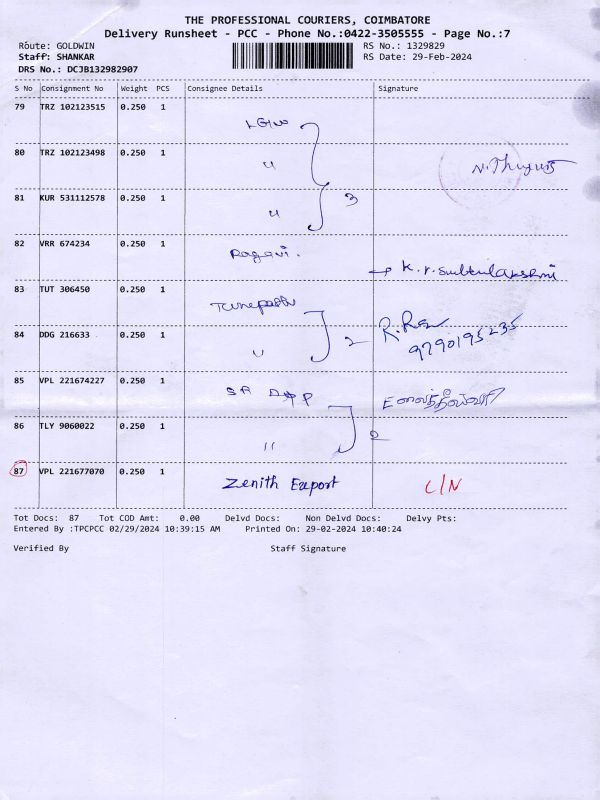 THE PROFESSIONAL COURIERS, COIMBATORE
Delivery Runsheet - PCC - Phone No.:0422-3505555 - Page No.:7
Route: GOLDWIN RS No.: 1329829
Staff: SHANKAR RS Date: 29-Feb-2024
DRS No.: DCJB132982907
S No Consignment No Weight PCS Consignee Details Signature
79 TRZ 102123515 0.250 1
80 TRZ 102123498 0.250 1 "
81 KUR 531112578 0.250 1 " 3
82 VRR 674234 0.250 1 Ragavi.
K.r.
83 TUT 306450 0.250 1
84 DDG 216633 0.250 1 " 2 9790195235
85 VPL 221674227 0.250 1 SR
86 TLY 9060022 0.250 1 " 2
87 VPL 221677070 0.250 1 Zenith Export
Tot Docs: 87 Tot COD Amt: 0.00 Delvd Docs: Non Delvd Docs: Delvy Pts:
Entered By :TPCPCC 02/29/2024 10:39:15 AM Printed On: 29-02-2024 10:40:24
Verified By Staff Signature